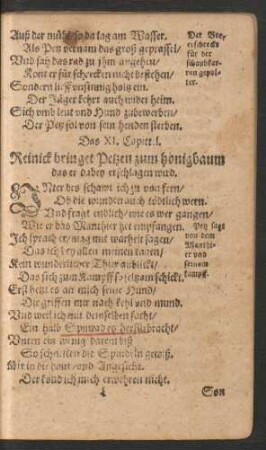 Auß der mühl so da lag am Wasser.
Als Petz vernam das groß geprassel/
Und sah das rad zu jhm angehen/
Kont er für schrecken nicht bestehen/
Sondern lieff versinnig holtz ein.
Der Jäger kehrt auch wider heim.
Sich umb leut und Hund zubewerben/
Der Petz sol von sein henden sterben.
Der Be-
erschrickt
für der
pol-
ter.
Das XI. Capittel.
Reinick bringet Petzen zum honigbaum
das er dabey erschlagen wurd.
UNter des schawt ich zu von fern/
Ob die wunden auch tödtlich wern.
Und fragt endlich/ wie es wer gangen/
Wie er das Manthier het empfangen.
Ich sprach er/ mag mit warheit sagen/
Das ich bey allen meinen tagen/
Kein wunderlicher Thier anblickt/
Das sich zum Kampff seltzam schickt.
Erst hetzt es an mich seine Hund/
Die griffen mir nach kehl und mund.
Und weil ich mit denselben facht/
Ein halb Spinrad es herfürbracht/
Unten ein wenig daran bließ
So schnitten die Spindeln gewiß.
Mir in die haut/ und Angesicht.
Der kond ich mich erwehren nicht.
Petz sagt
von dem
Manthi-
er und
seinem
kampff.
Son